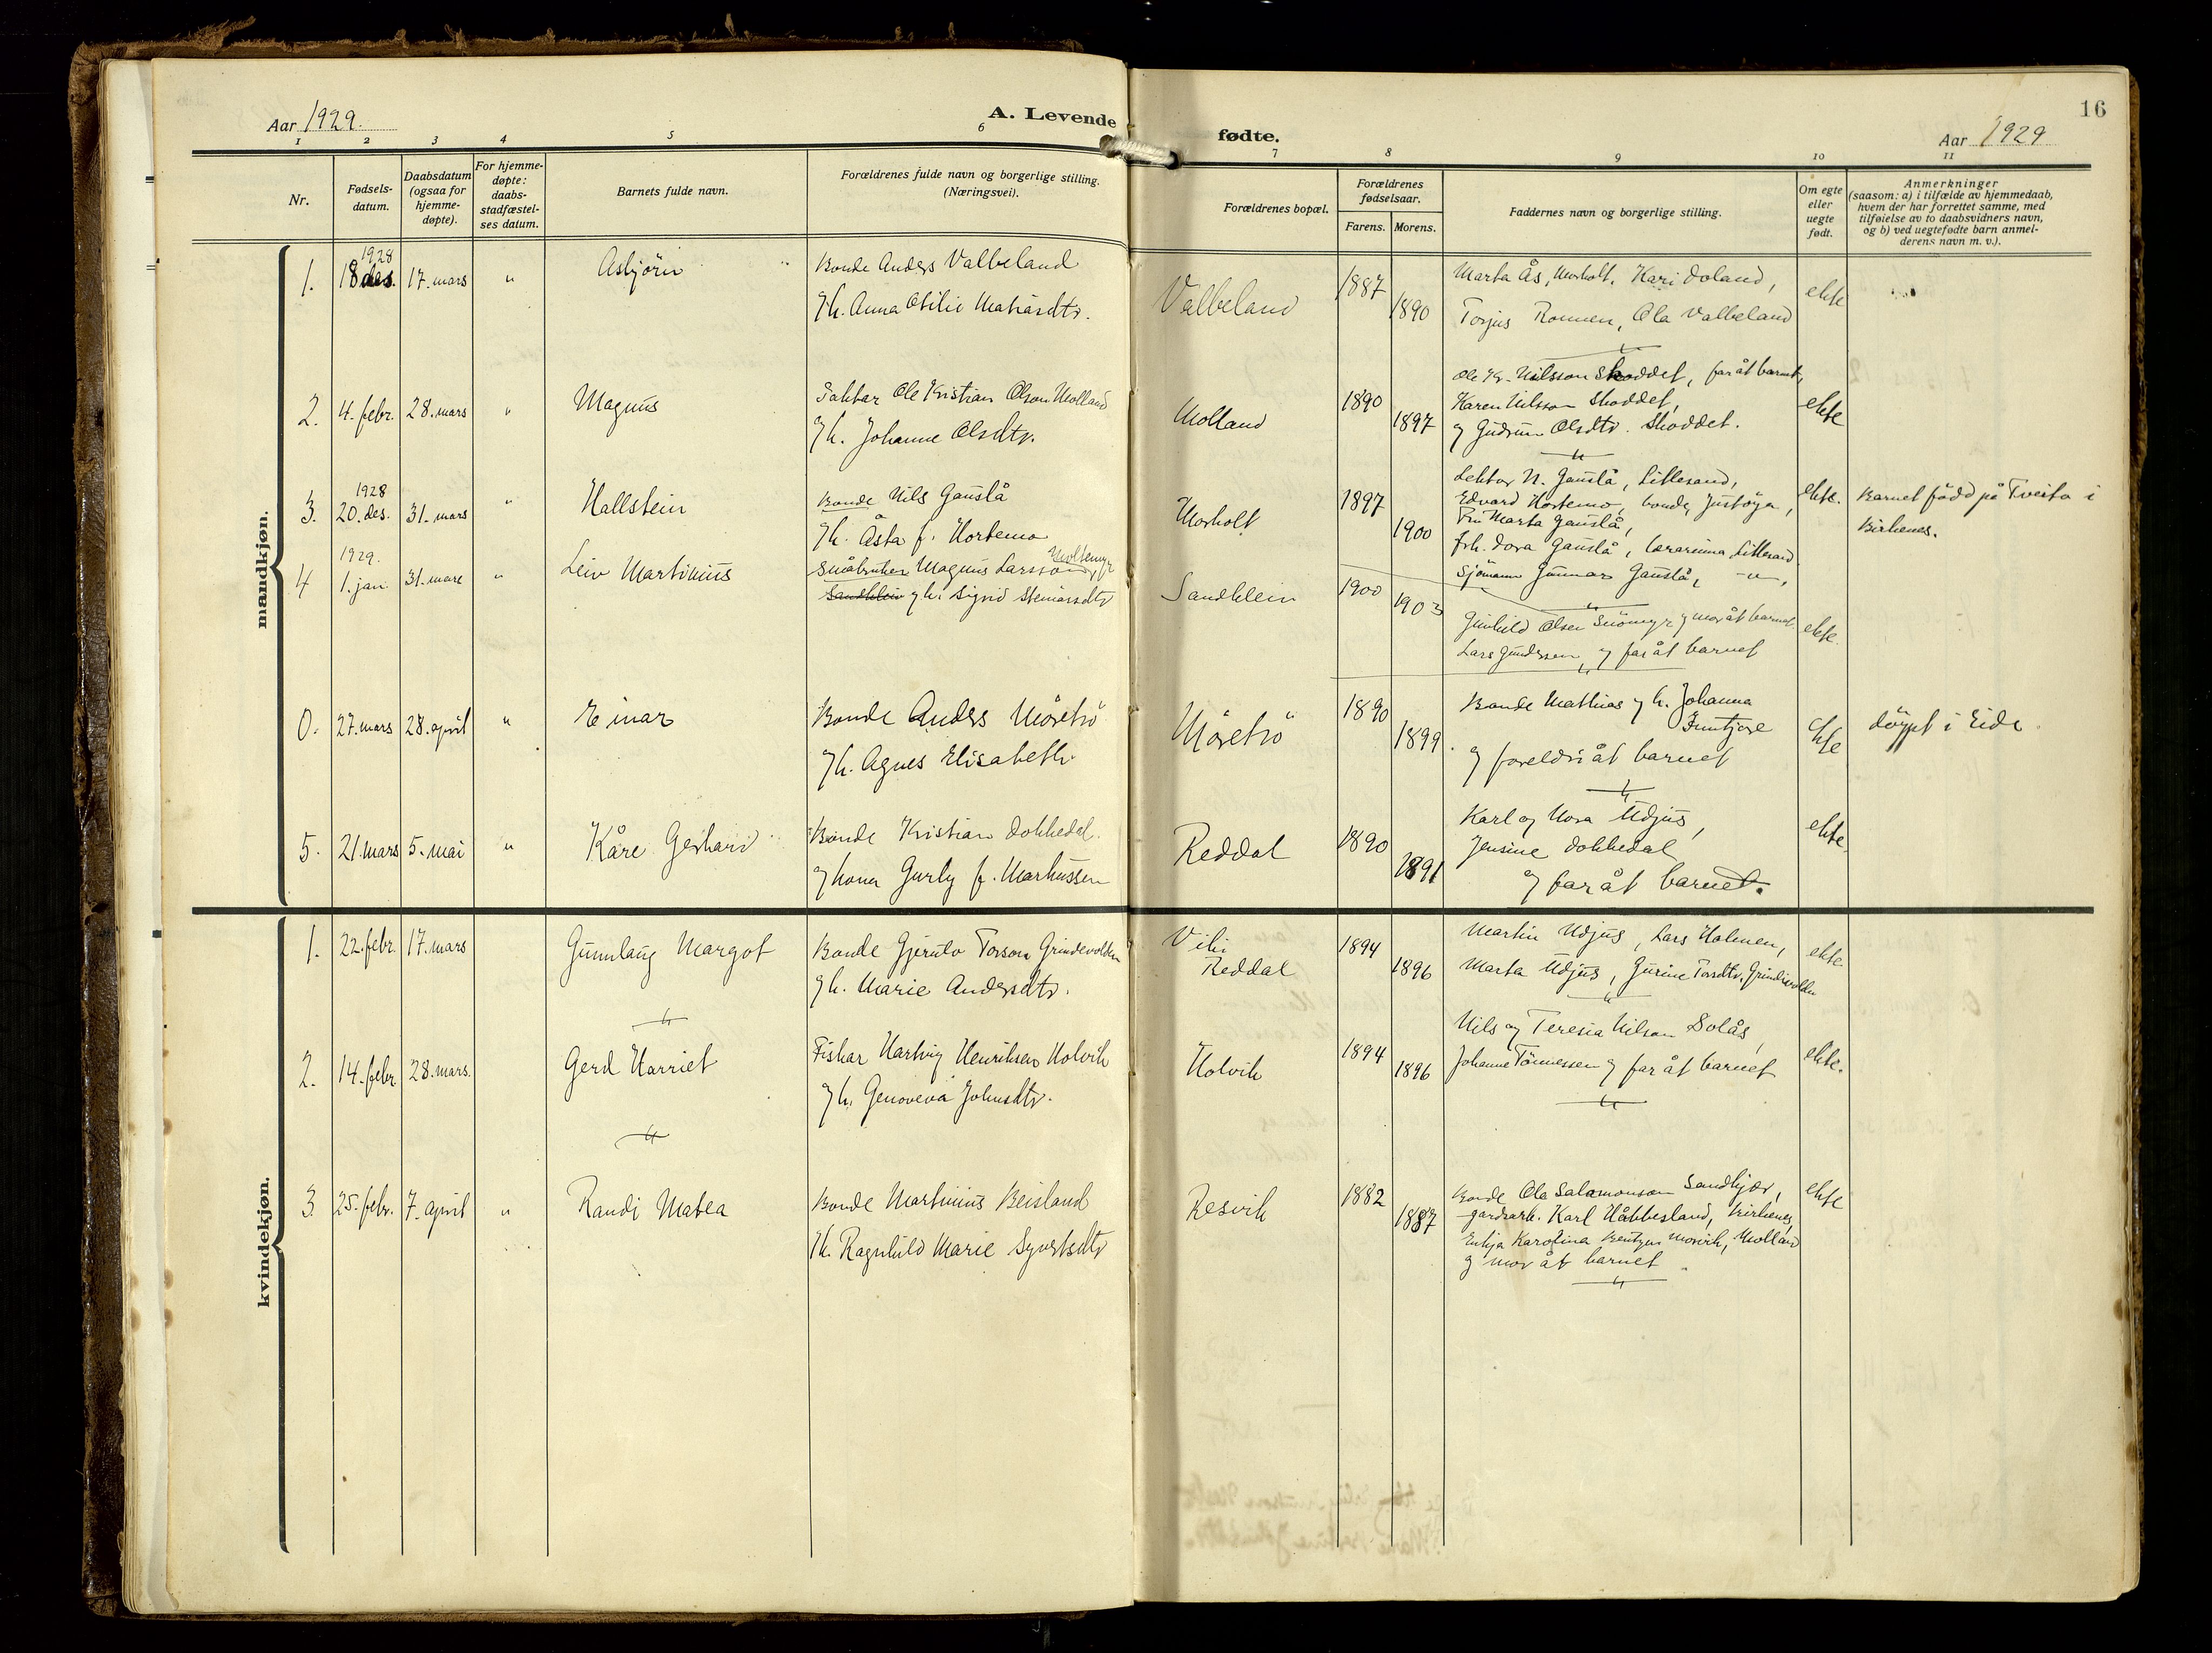 Aar 1929.
A. Levende
1 2 3 4 5 6
Nr.
Fødsels-
datum.
Daabsdatum
(ogsaa for
hjemme-
døpte).
For hjemme-
døpte:
daabs-
stadfæstel-
ses datum.
Barnets fulde navn.
Forældrenes fulde navn og borgerlige stilling.
(Næringsvei).
mandkjøn.
1. 1928 18 des. 17. mars " Asbjörn
Bonde Anders Valbeland
og h. Anna Otilie
2. 4. febr. 28. mars " Magnus
Ole Kristian Olson Molland
og h. Johanne Olsdtr.
3. 1928 20. des. 31. mars " Hallstein
Bonde Nils Gauslå
og h. Åsta f. Hortemo
4 1929. 1. jan. 31. mars " Leiv Martinius
Småbruker Magnus Larsson
Sandklein og h. Sigrid
0. 27. mars 28. april " Einar
Bonde Anders Måretrö
og h. Agnes Elisabeth
5. 21. mars 5. mai " Kåre Gerhard
Bonde Kristian Dokkedal
og kona Gurly f. Markussen
kvindekjøn.
1. 22. febr. 17. mars Gunnlaug Margot
Bonde Gjerulv Torson Grindevolden
og h. Marie Andersdtr.
2. 14. febr. 28. mars. Gerd Harriet
Fiskar Hartvig Henriksen Holvik
og h. Genoveva Johnsdtr.
3. 25. febr. 7. april " Randi Matea
Bonde Martinius Beisland
og h. Ragnhild Marie Syvertsdtr
16
fødte.
Aar 1929
7 8 9 10 11
Forældrenes bopæl.
Forældrenes
fødselsaar.
Farens. Morens.
Faddernes navn og borgerlige stilling.
Om egte
eller
uegte
født.
Anmerkninger
(saasom: a) i tilfælde av hjemmedaab,
hvem der har forrettet samme, med
tilføielse av to daabsvidners navn,
og b) ved uegtefødte barn anmel-
derens navn m. v.).
Valbeland 1887 1890
Marta Ås, Morholt, Kari Doland,
Torjus Ronnen, Ola Valbeland
ekte
Molland 1890 1897
Ole Kr. Nilsson Skoddet, far åt barnet,
Karen Nilsson Skoddet,
og Gudrun Olsdtr. Skoddet.
ekte
Morholt 1897 1900
Lektor N. Gauslå, Lillesand,
Edvard Hortemo, bonde, Justöya,
Fru Marta Gauslå,
frk. Dora Gauslå, lærarinna Lillesand
Sjömann Gunnar Gauslå, -"-,
ekte.
Barnet född på Tveita i
Birkenes.
Sandklein 1900 1903
Gunhild Olsen Snömyr og mor åt barnet.
Lars Gundersen og far åt barnet
ekte.
Måretrö 1890 1899.
Bonde Mathias og h. Johanna
og foreldri åt barnet
ekte
döypt i Eide.
Reddal 1890 1891
Karl og Nora Udjus,
Jensine Dokkedal
og far åt barnet.
ekte.
Reddal 1894 1896
Martin Udjus, Lars Holmen,
Marta Udjus, Gurine Torsdtr. Grindevolden
ekte.
Holvik 1894 1896
Nils og Teresia Nilson Solås,
Johanne Tönnessen og far åt barnet
ekte.
Resvik 1882 1887
Bonde Ola Salamonson Sandkjær,
gardsarb. Karl Håbbesland, Birkenes,
Enkja Karolina Bentzen Morvik, Molland
og mor åt barnet
ekte